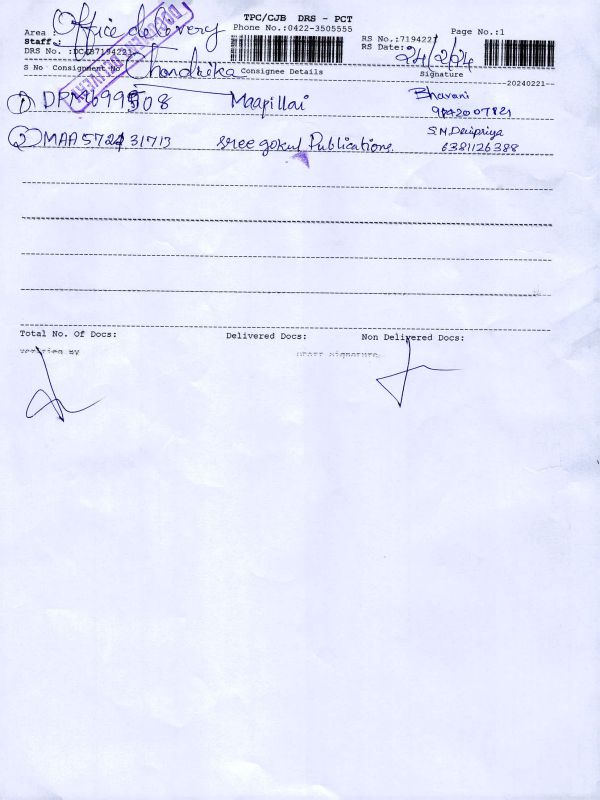 TPC/CJB DRS - PCT
Phone No.:0422-3505555
Page No.:1
Area : Office delivery
RS No.:7194221
RS Date: 21/2/24
Staff : Chandrika
DRS No. :DC/B7194221
S No Consignment No Consignee Details Signature
20240221
1 Maapillai Bhavani
9842007821
2 MAA572431713 sree gokul Publications S.N. Devipriya
6381126388
Total No. Of Docs: Delivered Docs: Non Delivered Docs:
Verified By Staff Signature